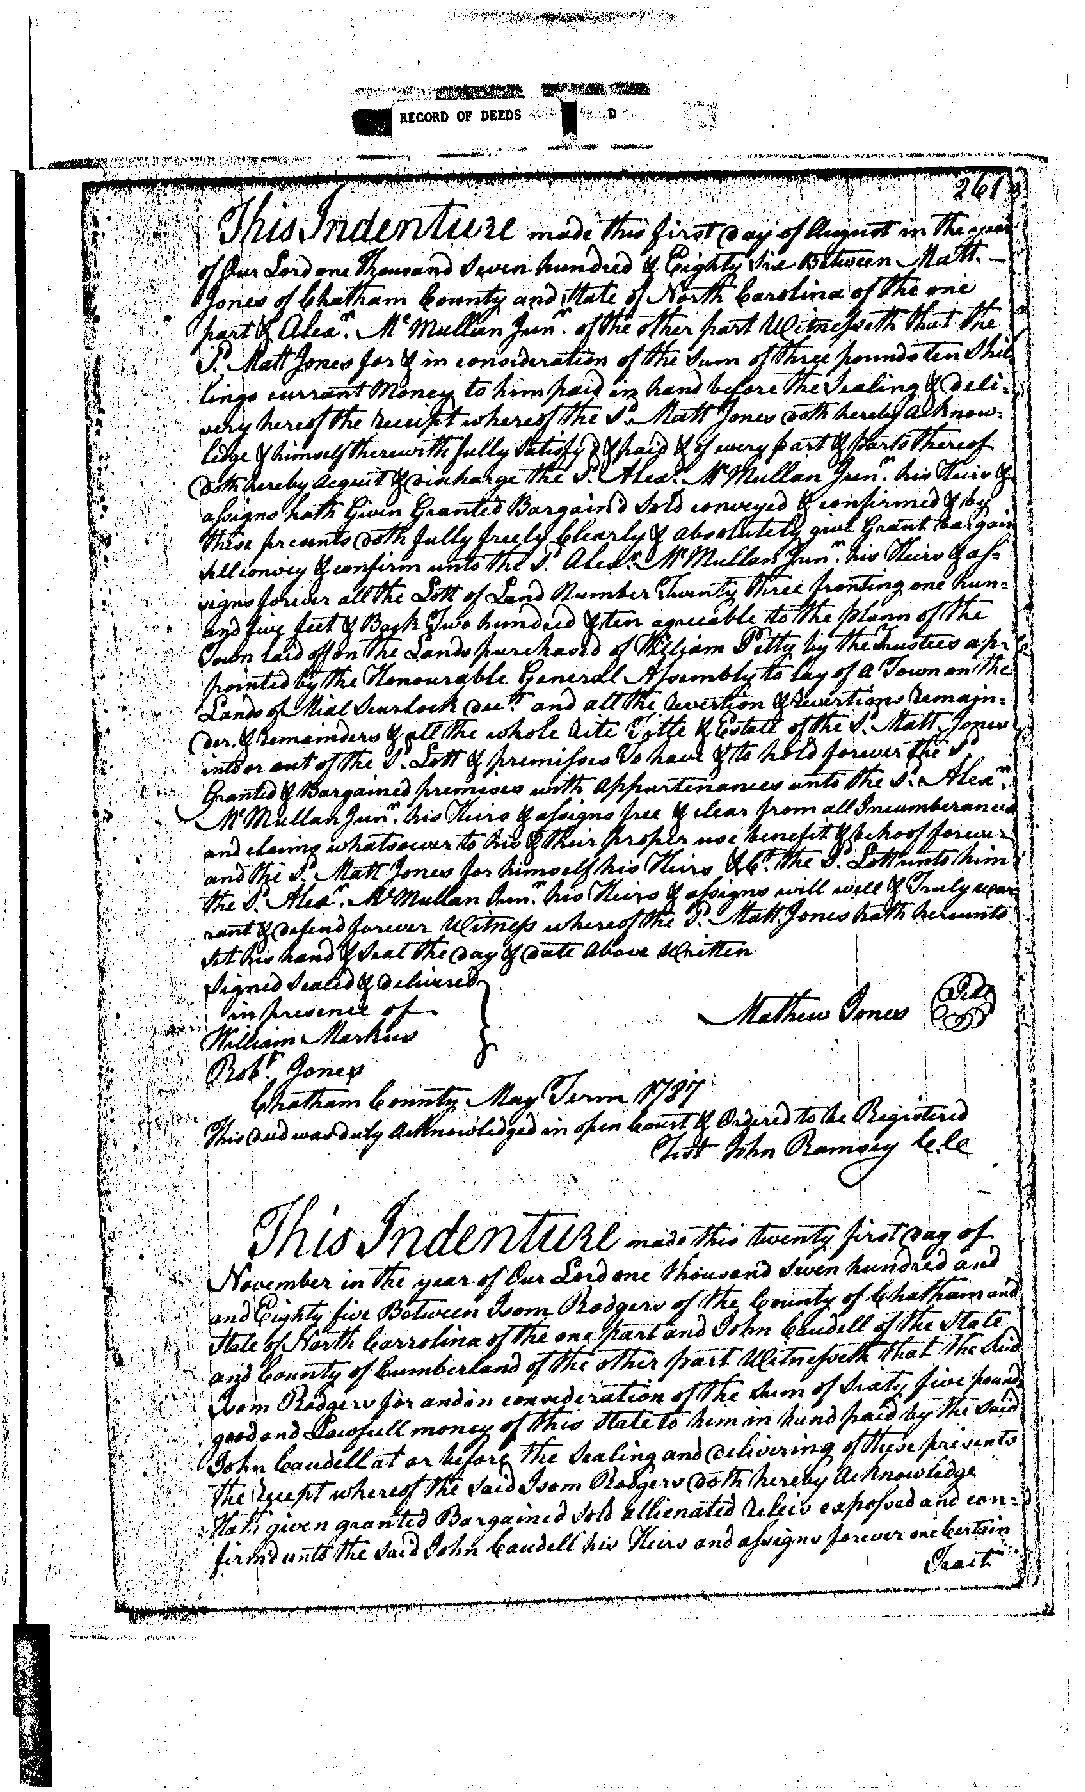 RECORD OF DEEDS D
261
This Indenture made this first day of August in the year
of Our Lord one Thousand Seven hundred & Eighty Six Between Matt.
Jones of Chatham County and State of North Carolina of the one
part & Alexr. McMullan Junr. of the other part Witnesseth that the
Sd. Matt Jones for & in consideration of the Sum of three pounds ten Shil
lings currant Money to him paid in hand before the Sealing & deli=
very hereof the receipt whereof the Sd. Matt Jones doth hereby acknow=
ledge & himself therewith fully Satisfy'd & paid & of every part & parts thereof
doth hereby acquit & discharge the Sd. Alexr. McMullan Junr. his Heirs &
assigns hath Given Granted Bargain'd Sold conveyed & confirmed & by
these presents doth fully freely Clearly & absolutely give Grant bargain
sell convey & confirm unto the Sd. Alexr. McMullan Junr. his Heirs & as=
signs forever all the Lott of Land Number Twenty three fronting one hun=
and five feet & Back Two hundred & ten agreeable to the plann of the
Town laid off on the Lands purchased of William Petty by the Trustees ap=
pointed by the Honourable General Assembly to lay of a Town on the
Lands of Mial Scurlock decd. and all the revertion & revertions remain=
der & remainders & all the whole rite Tittle & Estate of the Sd. Matt Jones
into or out of the Sd. Lott & premisses To have & to hold forever the Sd.
Granted & Bargained premises with appurtenances unto the Sd. Alexr.
McMullan Junr. his Heirs & assigns free & clear from all Incumberances
and claims whatsoever to his & their proper use benefit & behoof forever
and the Sd. Matt Jones for himself his Heirs &Ct. the Sd. Lott unto him
the Sd. Alexr. McMullan Junr. his Heirs & assigns will well & Truly war
rant & defend forever Witness whereof the Sd. Matt Jones hath hereunto
set his hand & Seal the day & date above Written
Signed Sealed & delivered
in presence of
Mathew Jones Seal
William Markus
Robt. Jones
Chatham County May Term 1787
This deed was duly acknowledged in open Court & Ordered to be Registered
Test John Ramsey C.C
This Indenture made this twenty first day of
November in the year of Our Lord one thousand Seven hundred and
and Eighty five Between Isom Rodgers of the County of Chatham and
State of North Carrolina of the one part and John Caudell of the State
and County of Cumberland of the other part Witnesseth that the Said
Isom Rodgers for and in consideration of the Sum of Sixty five pounds
good and Lawfull money of this State to him in hand paid by the Said
John Caudell at or before the Sealing and delivering of these presents
the recept whereof the said Isom Rodgers doth hereby acknowledge
Hath given granted Bargained Sold allienated releis exposed and con=
firmd unto the said John Caudell his Heirs and assigns forever one Certain
Tract